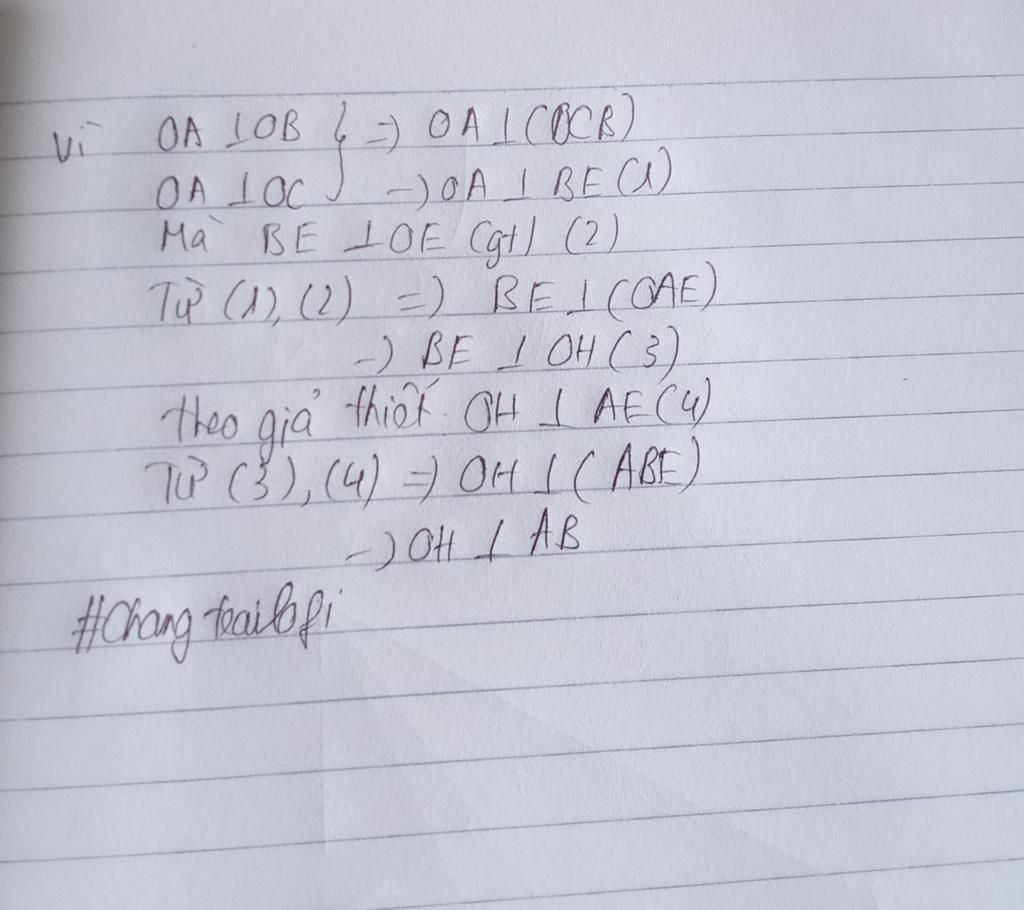 Vì OA ⊥ OB } => OA ⊥ (OCB)
OA ⊥ OC } -> OA ⊥ BE (1)
Mà BE ⊥ OE (gt) (2)
Từ (1), (2) => BE ⊥ (OAE)
-> BE ⊥ OH (3)
theo giả thiết OH ⊥ AE (4)
Từ (3), (4) => OH ⊥ (ABE)
-> OH ⊥ AB
#Chang